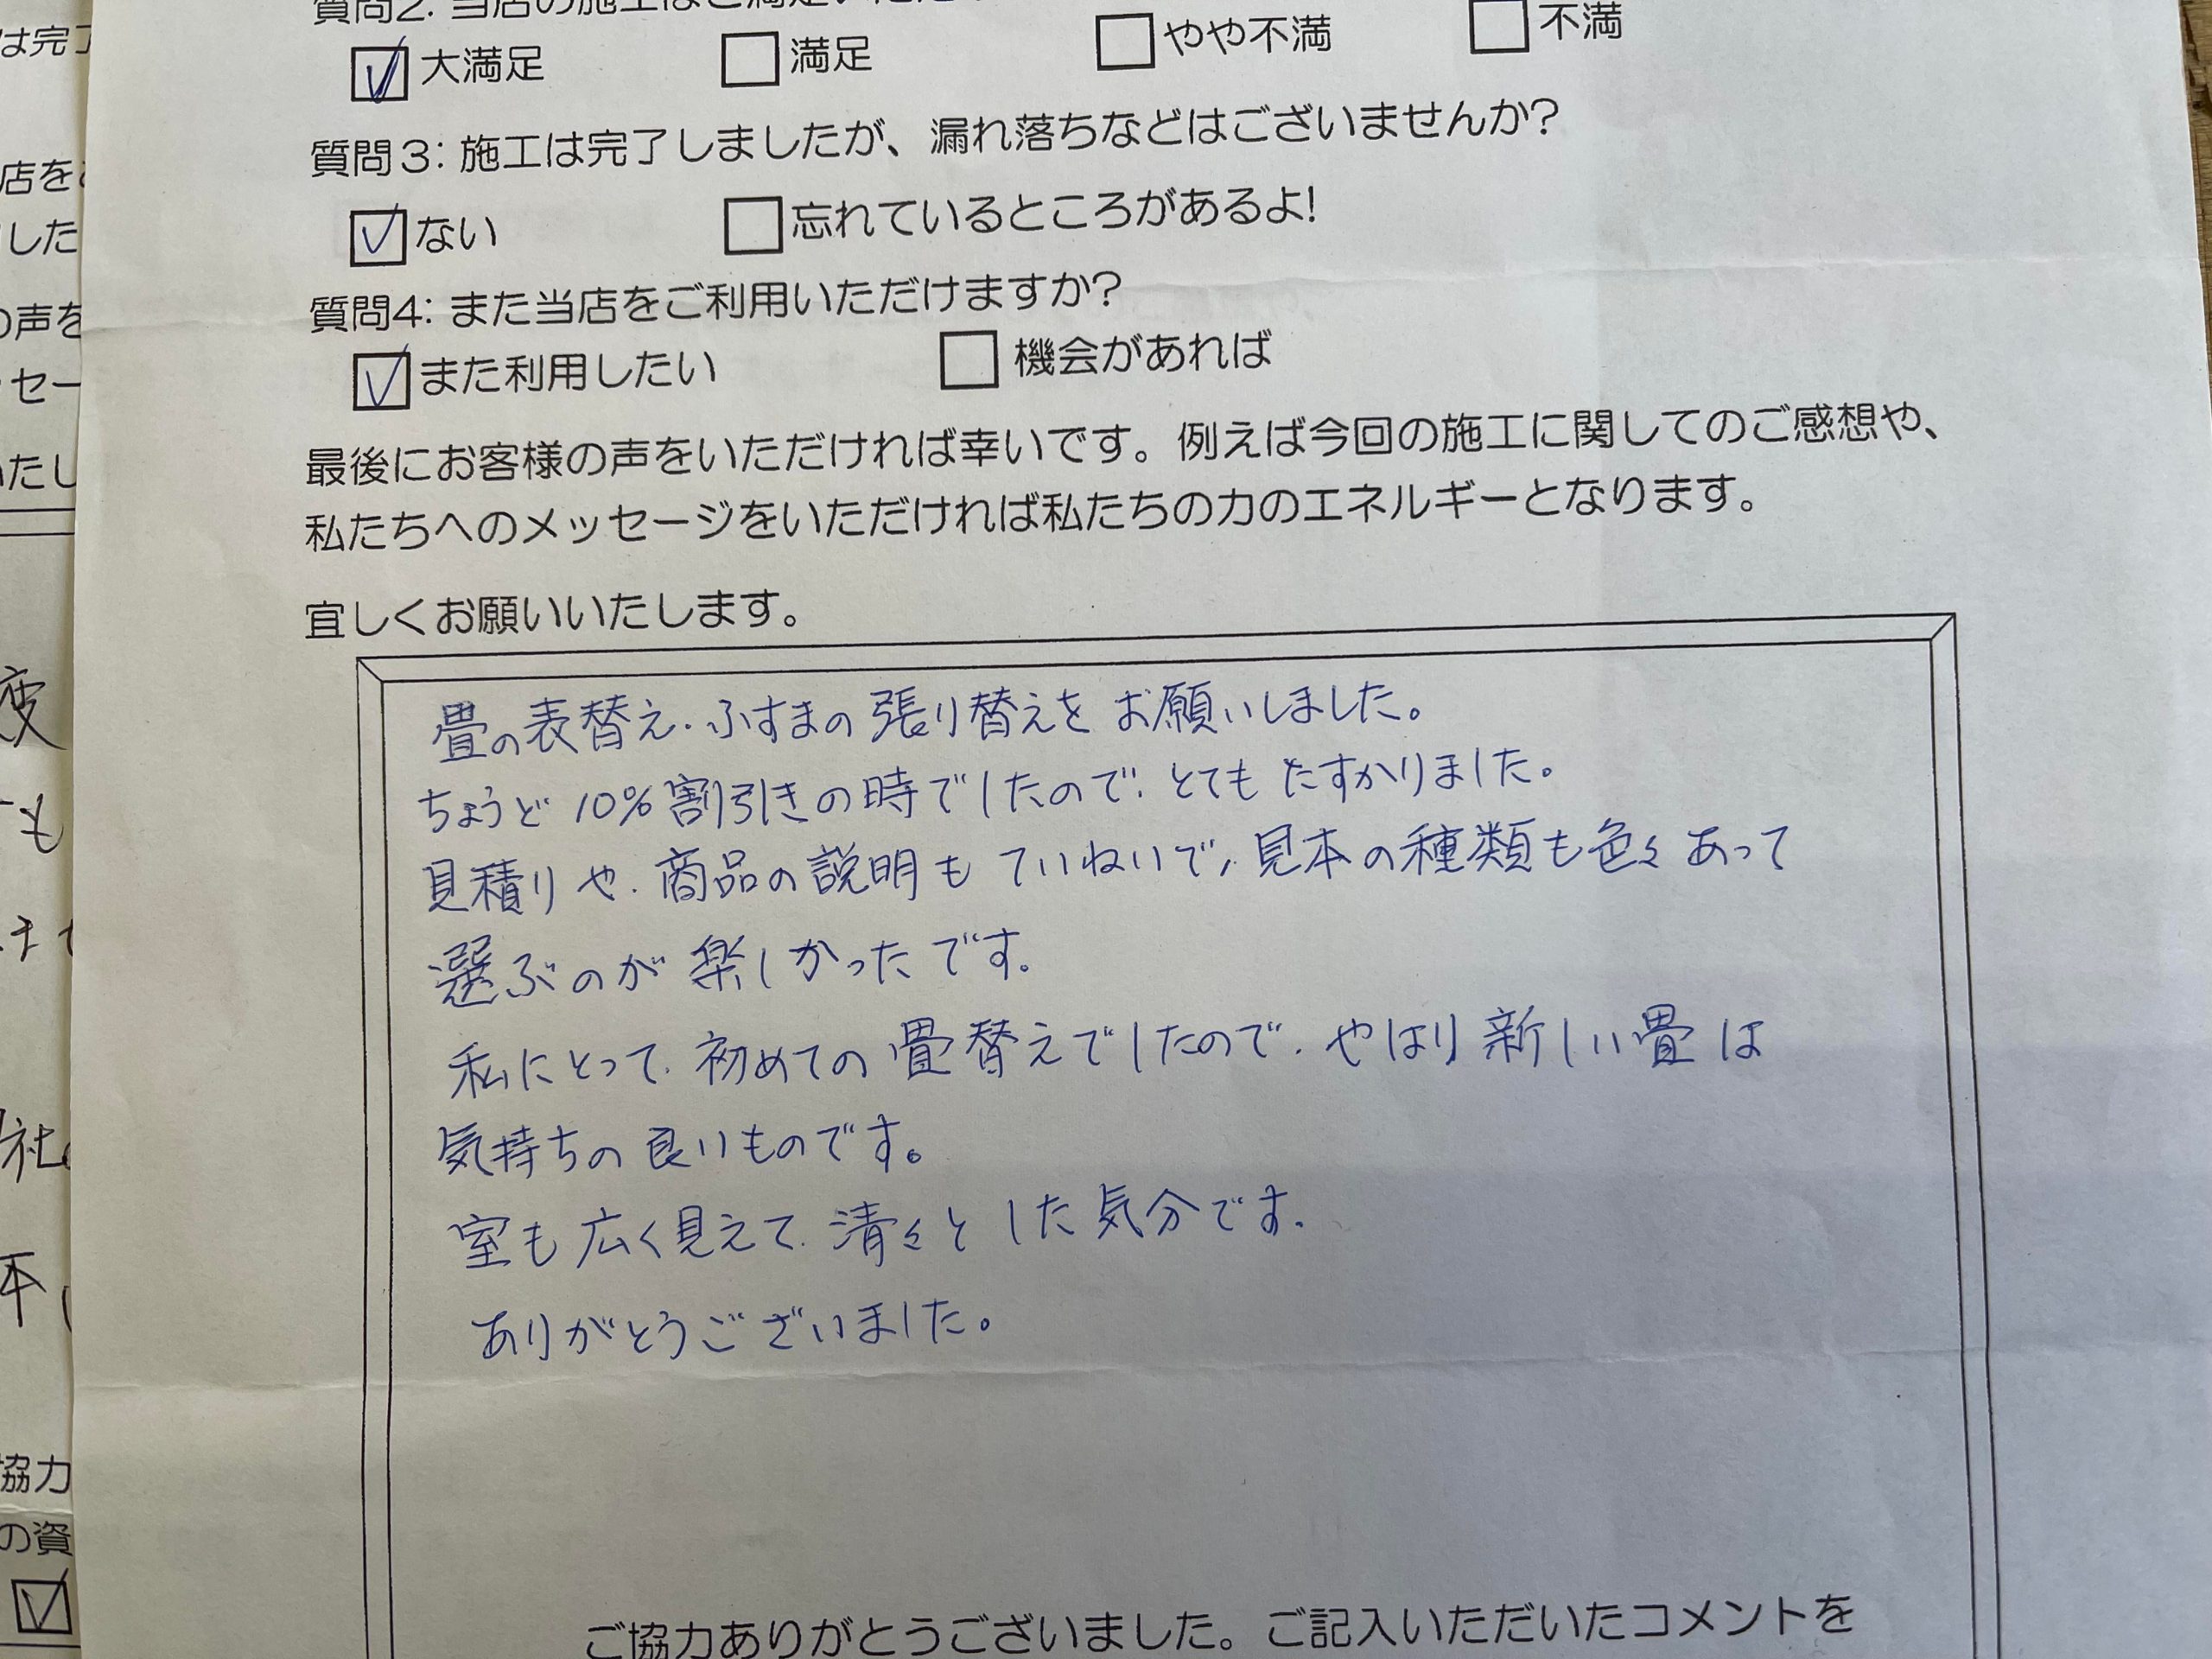 質問2: 当店の施工はご満足いただ
大満足 満足 やや不満 不満
質問3: 施工は完了しましたが、漏れ落ちなどはございませんか?
ない 忘れているところがあるよ!
質問4: また当店をご利用いただけますか?
また利用したい 機会があれば
最後にお客様の声をいただければ幸いです。例えば今回の施工に関してのご感想や、
私たちへのメッセージをいただければ私たちの力のエネルギーとなります。
宜しくお願いいたします。
畳の表替え.ふすまの張り替えをお願いしました。
ちょうど10%割引きの時でしたので.とてもたすかりました。
見積りや.商品の説明もていねいで,見本の種類も色々あって
選ぶのが楽しかったです。
私にとって.初めての畳替えでしたので.やはり新しい畳は
気持ちの良いものです。
室も広く見えて.清々とした気分です.
ありがとうございました。
ご協力ありがとうございました。ご記入いただいたコメントを
は完了
店をご
した
の声を
セー
いたし
度
も
社
本
協力
の資